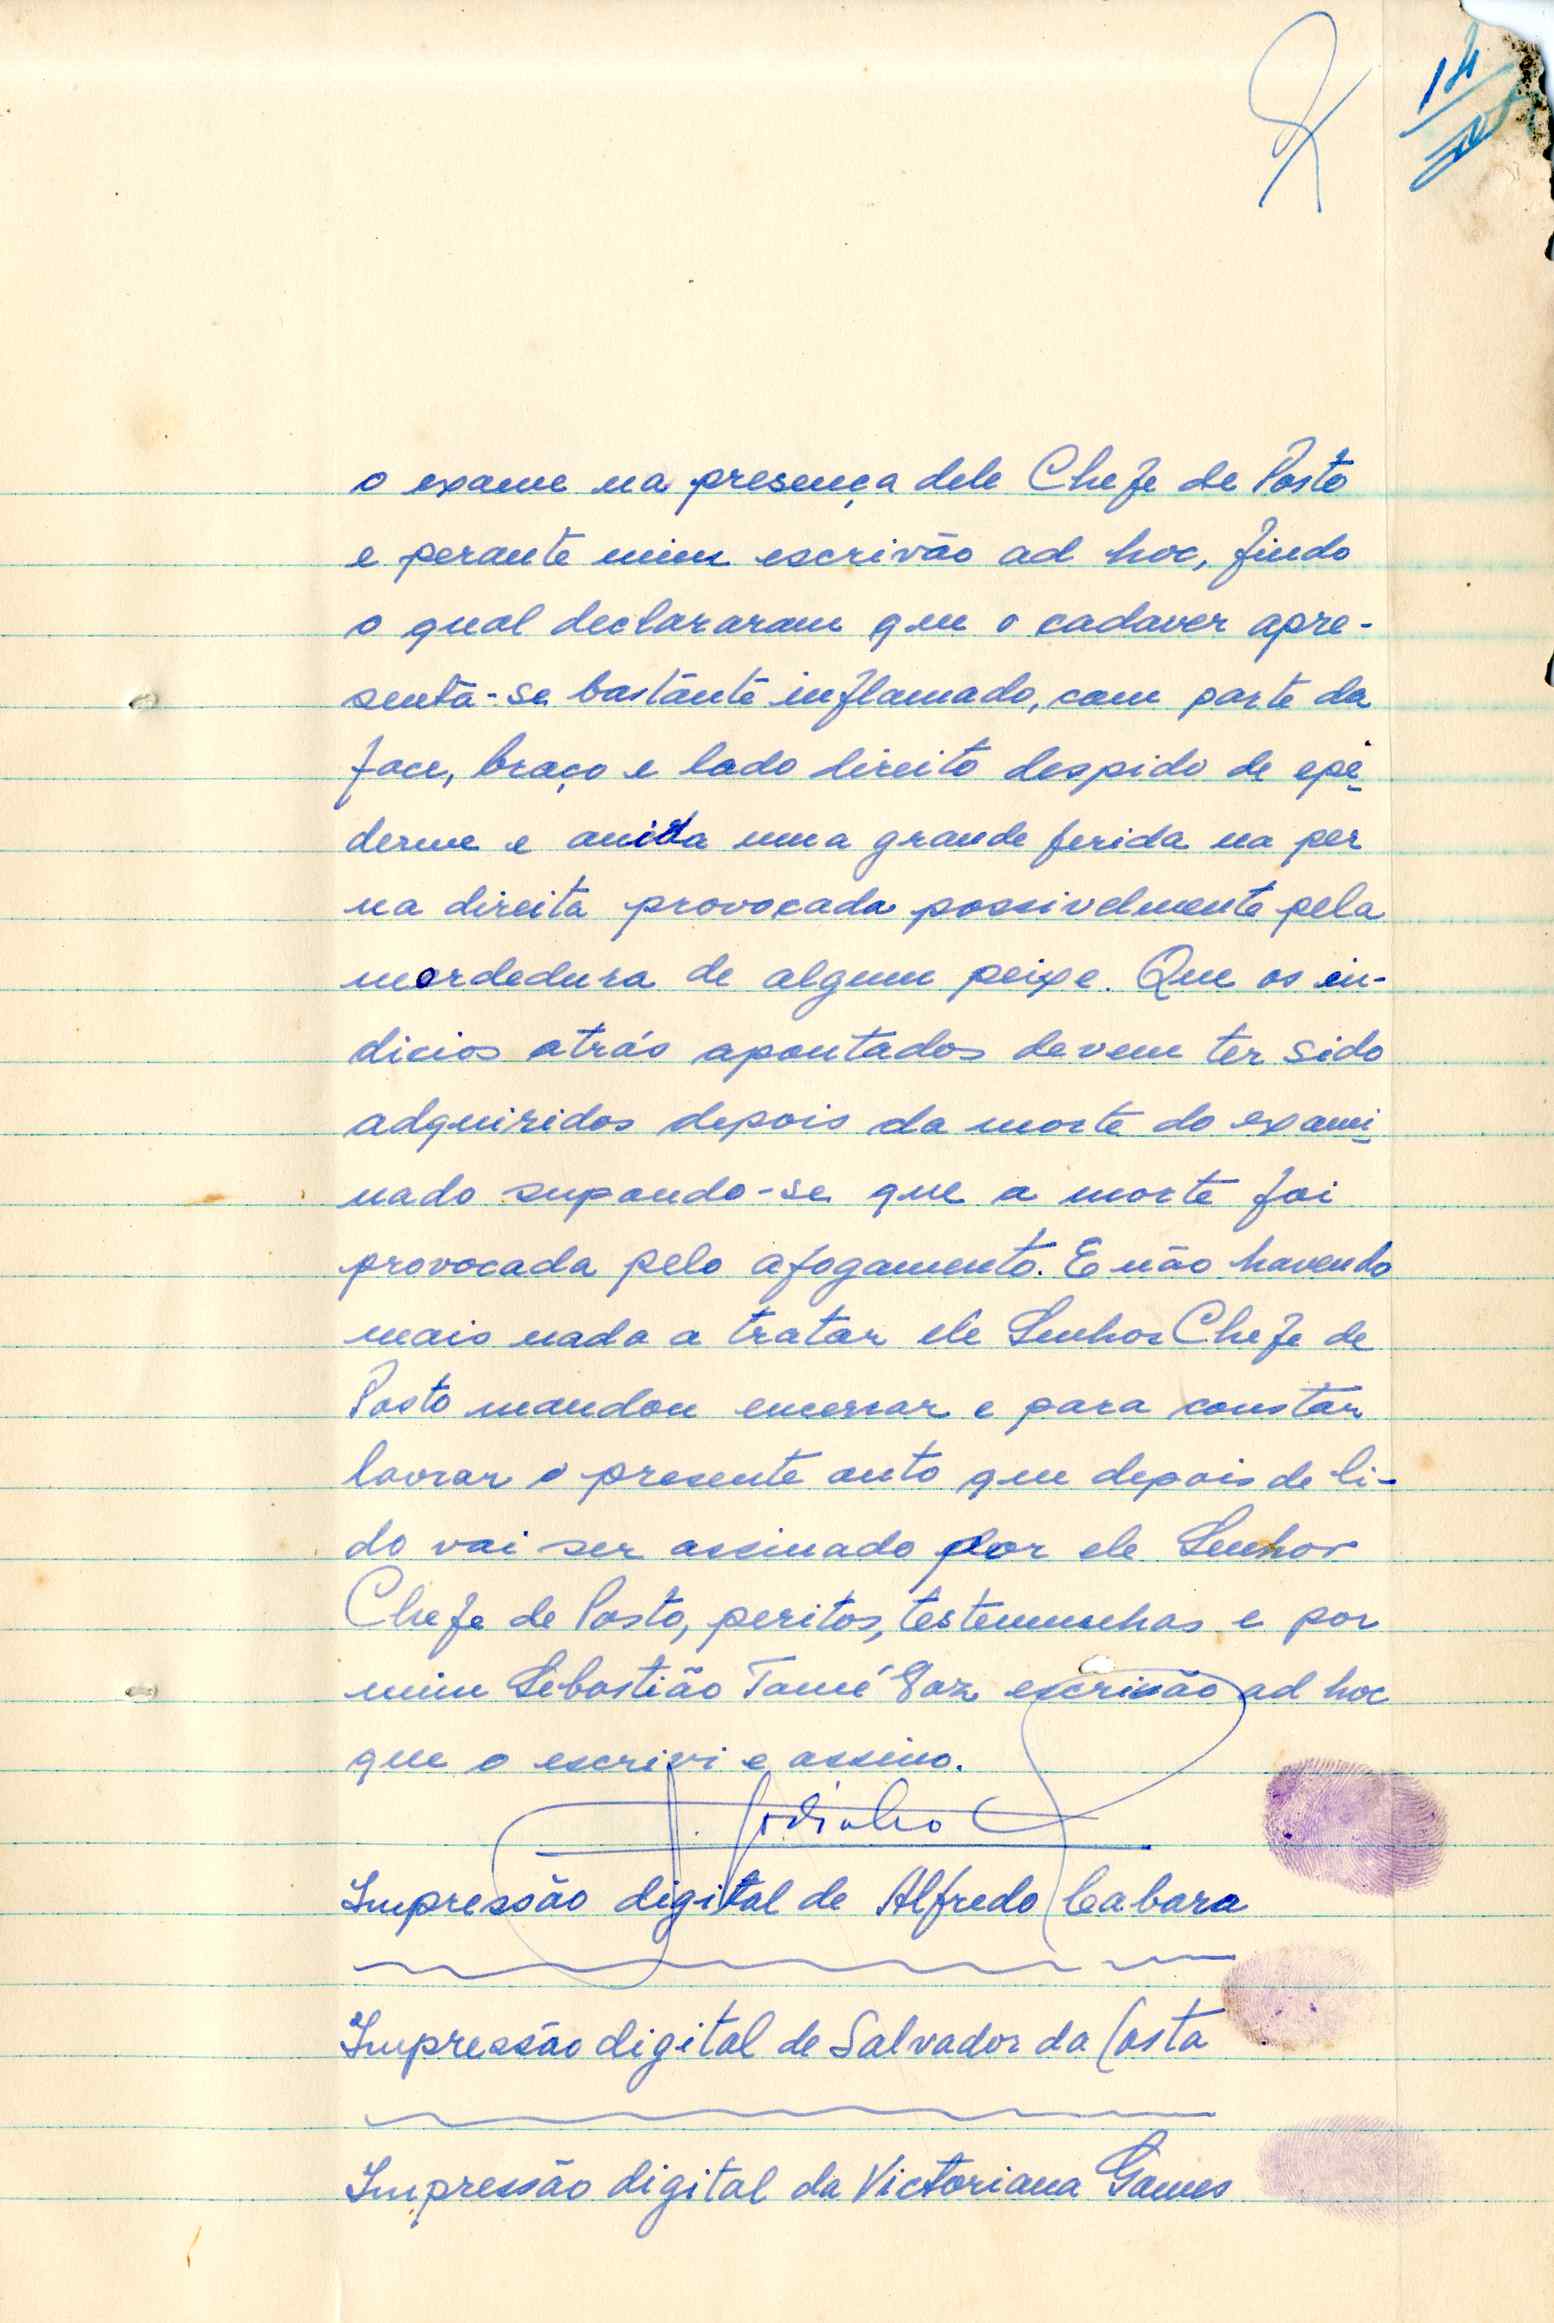 14
o exame na presença dele Chefe de Posto
e perante mim escrivão ad hoc, findo
o qual declararam que o cadaver apre-
senta-se bastante inflamado, com parte da
face, braço e lado direito despido de epi-
derme e ainda uma grande ferida na per
na direita provocada possivelmente pela
mordedura de algum peixe. Que os in-
dicios atrás apontados devem ter sido
adquiridos depois da morte do exami-
nado supondo-se que a morte foi
provocada pelo afogamento. E não havendo
mais nada a tratar ele Senhor Chefe de
Posto mandou encerrar e para constar
lavrar o presente auto que depois de li-
do vai ser assinado por ele Senhor
Chefe de Posto, peritos, testemunhas e por
mim Sebastião Tomé Vaz escrivão ad hoc
que o escrevi e assino.
Godinho
Impressão digital de Alfredo Cabara
Impressão digital de Salvador da Costa
Impressão digital da Victoriana Gomes